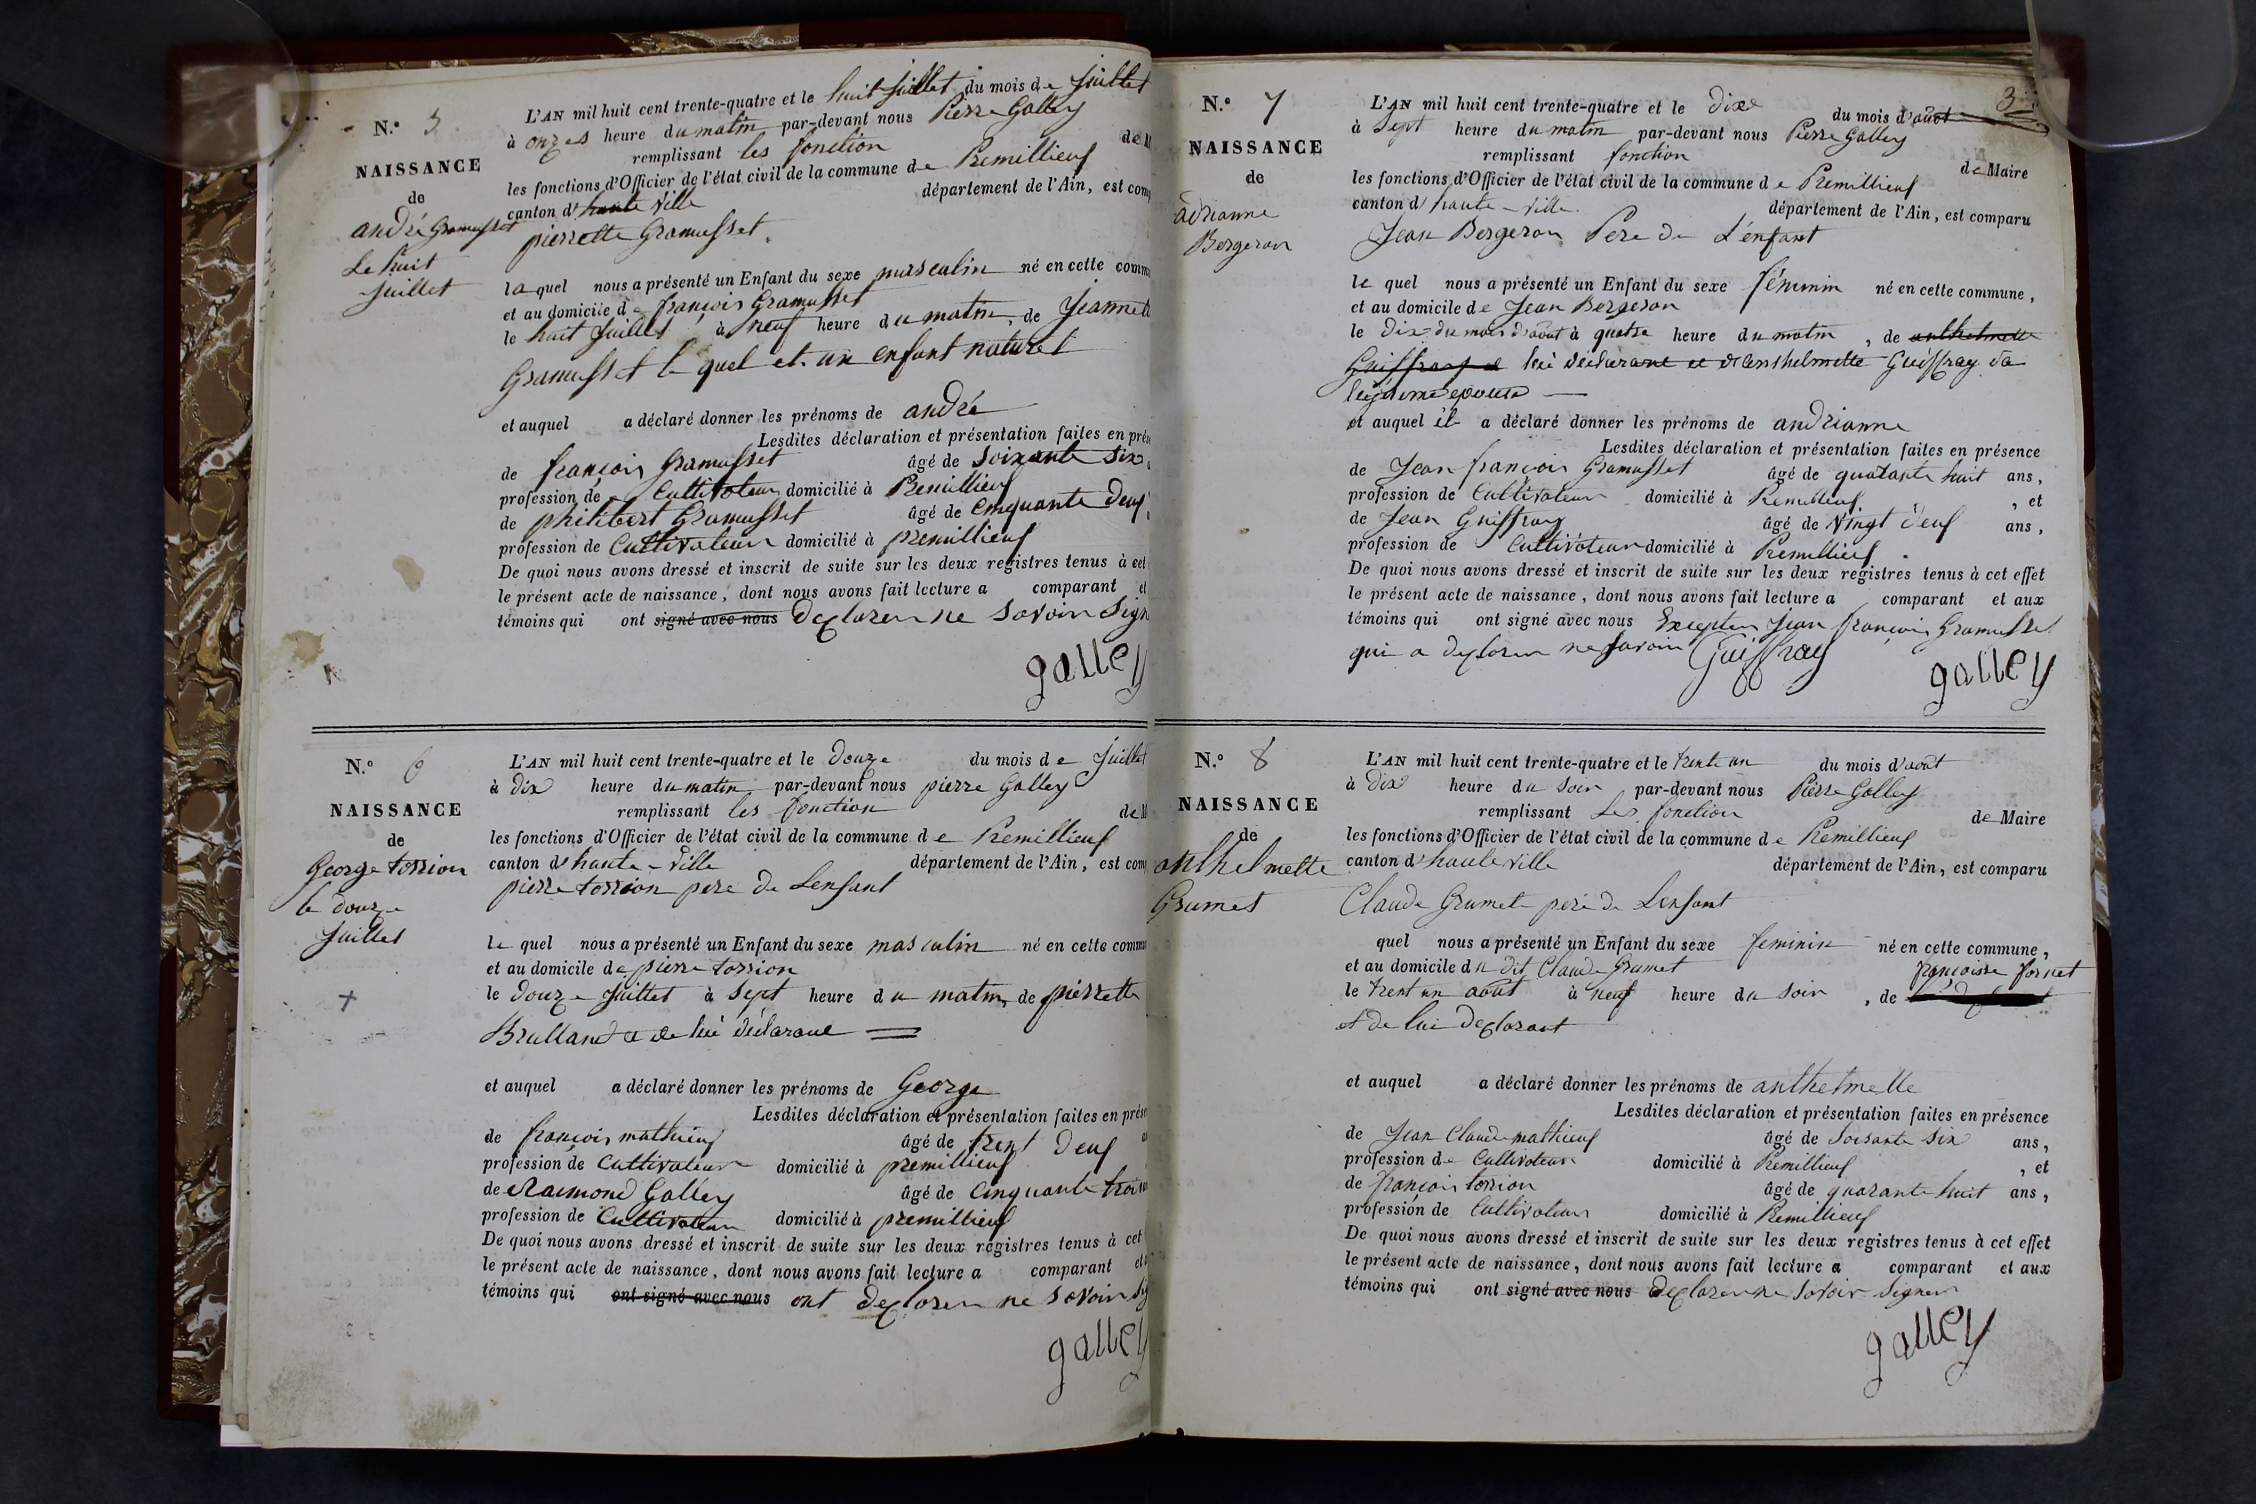 N.º 5
NAISSANCE
de
andré Gramusset
Le huit
juillet
L'AN mil huit cent trente-quatre et le huit juillet du mois de juillet
à onzes heure du matin par-devant nous Pierre Galley
remplissant les fonction de M
les fonctions d'Officier de l'état civil de la commune de Premillieux
canton d' haute ville département de l'Ain, est com
pierrette Gramusset.
laquel nous a présenté un Enfant du sexe masculin né en cette comm
et au domicile de françois Gramusset
le huit juillet à neuf heure du matin, de Jeannet
Gramusset le quel et un enfant naturel
et auquel a déclaré donner les prénoms de andré
Lesdites déclaration et présentation faites en prés
de françois Gramusset âgé de soixante six
profession de Cultivateur domicilié à Premillieux
de philibert Gramusset âgé de cinquante deux
profession de Cultivateur domicilié à premillieux
De quoi nous avons dressé et inscrit de suite sur les deux registres tenus à cet
le présent acte de naissance, dont nous avons fait lecture a comparant et
témoins qui ont signé avec nous declarer ne savoir sign
galley
N.º 6
NAISSANCE
de
George torrion
le douze
juillet
L'AN mil huit cent trente-quatre et le Douze du mois de juillet
à dix heure du matin par-devant nous pierre Galley
remplissant les fonction de M
les fonctions d'Officier de l'état civil de la commune de Premillieux
canton d' haute-ville département de l'Ain, est com
pierre torrion pere de Lenfant
le quel nous a présenté un Enfant du sexe masculin né en cette commu
et au domicile de pierre torrion
le douze juillet à sept heure du matin, de pierrette
Brulland et de lui déclarant
et auquel a déclaré donner les prénoms de George
Lesdites déclaration et présentation faites en prése
de françois mathieux âgé de trent deux
profession de cultivateur domicilié à premillieux
de Raimond Galley âgé de cinquante trois
profession de Cultivateur domicilié à premillieux
De quoi nous avons dressé et inscrit de suite sur les deux registres tenus à cet
le présent acte de naissance, dont nous avons fait lecture a comparant et
témoins qui ont signé avec nous ont declarer ne savoir sig
galley
3
N.º 7
NAISSANCE
de
adrianne
Bergeron
L'AN mil huit cent trente-quatre et le dixe du mois d'août
à sept heure du matin par-devant nous Pierre Galley
remplissant fonction de Maire
les fonctions d'Officier de l'état civil de la commune de Premillieux
canton d' haute-ville département de l'Ain, est comparu
Jean Bergeron Pere de L'enfant
le quel nous a présenté un Enfant du sexe féminin né en cette commune,
et au domicile de Jean Bergeron
le Dix du mois d'août à quatre heure du matin, de anthelmette
Guiffray et lui déclarant et d'enthelmette Guiffray sa
légitime epouse
et auquel il a déclaré donner les prénoms de andrianne
Lesdites déclaration et présentation faites en présence
de Jean françois Gramusset âgé de quarante huit ans,
profession de Cultivateur domicilié à Premillieux, et
de Jean Guiffray âgé de vingt deux ans,
profession de Cultivateur domicilié à Premillieux.
De quoi nous avons dressé et inscrit de suite sur les deux registres tenus à cet effet
le présent acte de naissance, dont nous avons fait lecture a comparant et aux
témoins qui ont signé avec nous Excepter Jean françois Gramusset
qui a declarer ne savoir Guiffray galley
N.º 8
NAISSANCE
de
anthelmette
Grumet
L'AN mil huit cent trente-quatre et le trente un du mois d'aout
à Dix heure du soir par-devant nous Pierre Galley
remplissant Les fonction de Maire
les fonctions d'Officier de l'état civil de la commune de Premillieux
canton d' haute ville département de l'Ain, est comparu
Claude Grumet pere de Lenfant
quel nous a présenté un Enfant du sexe feminin né en cette commune,
et au domicile du dit Claude Grumet françoise fornet
le trent un août à neuf heure du soir, de
et de lui declarant
et auquel a déclaré donner les prénoms de anthelmette
Lesdites déclaration et présentation faites en présence
de Jean Claude mathieux âgé de soisante six ans,
profession de Cultivateur domicilié à Premillieux, et
de françois torrion âgé de quarante huit ans,
profession de Cultivateur domicilié à Premillieux
De quoi nous avons dressé et inscrit de suite sur les deux registres tenus à cet effet
le présent acte de naissance, dont nous avons fait lecture a comparant et aux
témoins qui ont signé avec nous declarer ne savoir signer
galley